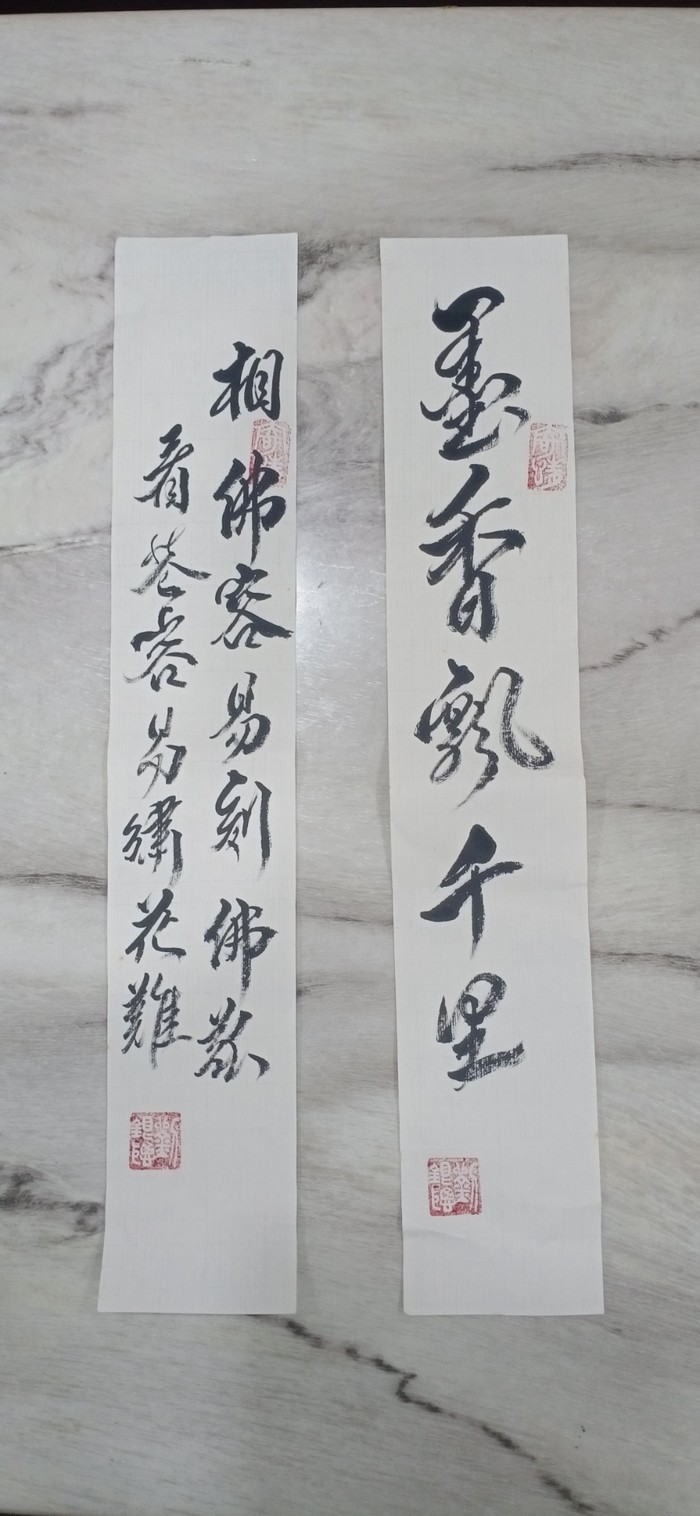 墨香飄千里
相佛容易刻佛難
看花容易繡花難